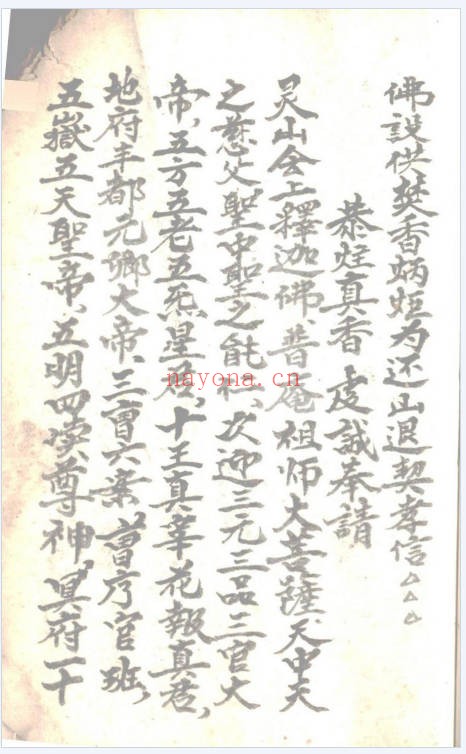 佛設供焚香炳炬为还山退契孝信△△△
恭炷真香虔誠奉請
灵山会上釋迦佛、普庵祖師大菩薩、天中天
之慈父聖中聖之能仁、次迎三元三品三官大
帝、五方五老五炁星君、十王真宰花報真君、
地府丰都元卿大帝、三曹六案、曹府官班、
五嶽五天聖帝、五明四渎尊神、冥府一十
nayona.cn